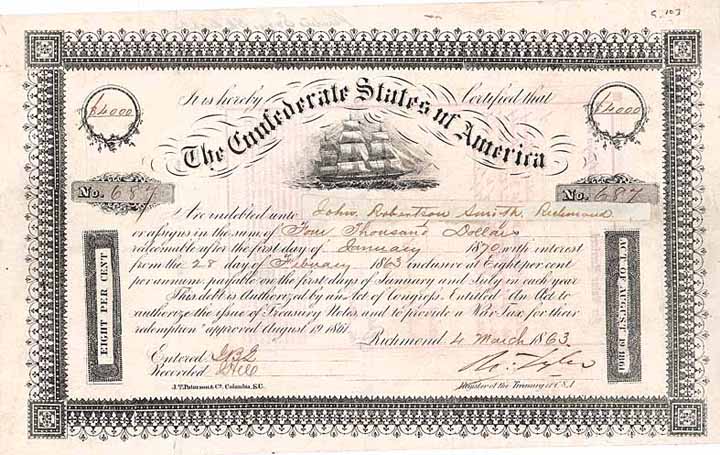 C. 103
It is hereby Certified that
$4000 $4000
The Confederate States of America
No. 687 No. 687
Are indebted unto John Robertson Smith, Richmond
or assigns in the sum of Four Thousand Dollars
redeemable after the first day of January 1870 with interest
from the 28 day of February 1863 inclusive at Eight per cent
per annum, payable on the first days of January and July in each year
This debt is Authorized by an Act of Congress Entitled "An Act to
authorize the issue of Treasury Notes, and to provide a War Tax for their
redemption" approved August 19 1861.
Richmond 4 March 1863
Entered
Recorded
Ro: Tyler
J.T. Paterson & Co. Columbia, S.C.
Register of the Treasury of C.S.A
EIGHT PER CENT
ACT OF AUGUST 19 1861